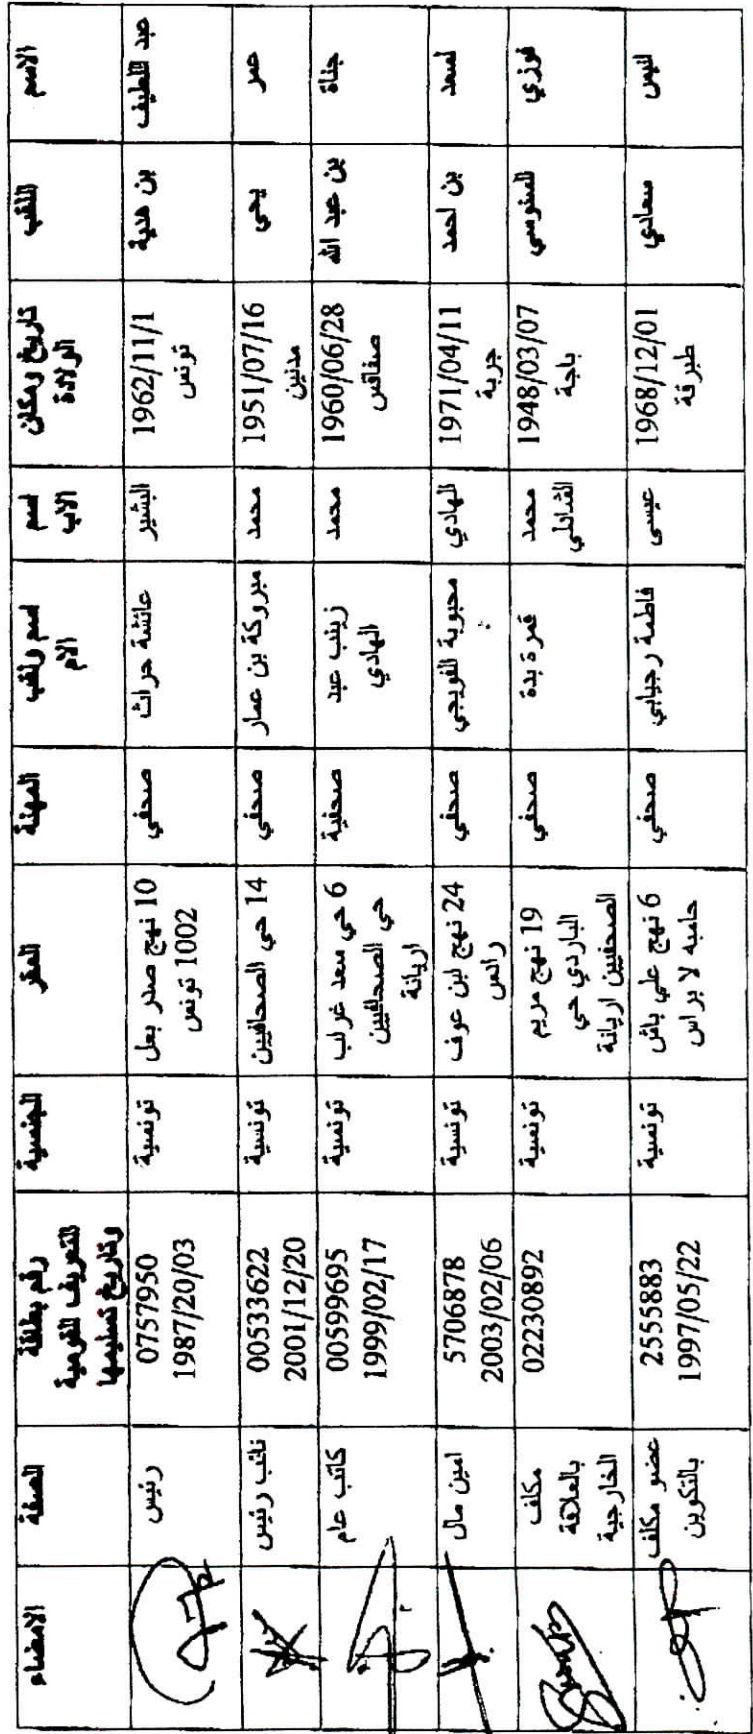 الاسم
اللقب
تاريخ ومكان
الولادة
اسم
الأب
اسم ولقب
الأم
المهنة
المقر
الجنسية
رقم بطاقة
التعريف القومية
وتاريخ تسليمها
الصفة
الامضاء
عبد اللطيف
بن هدية
1962/11/1
تونس
البشير
عائشة حراث
صحفي
10 نهج صدر بعل
1002 تونس
تونسية
0757950
1987/20/03
رئيس
عمر
يحي
1951/07/16
مدنين
محمد
مبروكة بن عمار
صحفي
14 حي الصحافيين
تونسية
00533622
2001/12/20
نائب رئيس
جناة
بن عبد الله
1960/06/28
صفاقس
محمد
زينب عبد
الهادي
صحفية
6 حي سعد غراب
حي الصحافيين
اريانة
تونسية
00599695
1999/02/17
كاتب عام
لسعد
بن احمد
1971/04/11
جربة
الهادي
محبوبة الفريجي
صحفي
24 نهج ابن عوف
رادس
تونسية
5706878
2003/02/06
امين مال
فوزي
السنوسي
1948/03/07
باجة
محمد
الشاذلي
قمرة بدة
صحفي
19 نهج مريم
الباردي حي
الصحفيين اريانة
تونسية
02230892
مكلف
بالعلاقة
الخارجية
انيس
سعادي
1968/12/01
طبرقة
عيسى
فاطمة رجيابي
صحفي
6 نهج علي باش
حامبه لابراس
تونسية
2555883
1997/05/22
عضو مكلف
بالتكوين